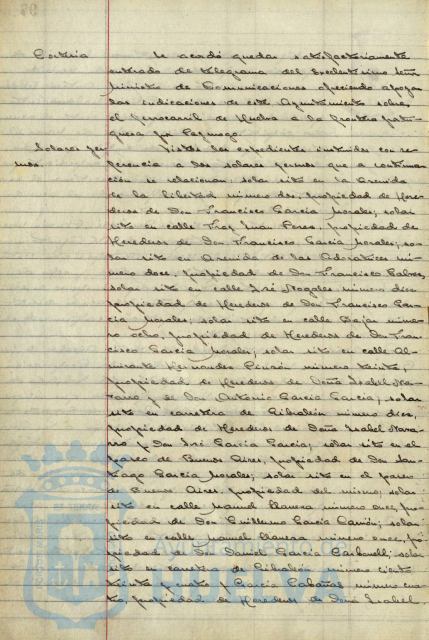 Cortesia
Se acordó quedar satisfactoriamente
enterado de telegrama del Excelentisimo Señor
Ministro de Comunicaciones ofreciendo apoyar
las indicaciones de este Ayuntamiento sobre
el ferrocarril de Huelva a la frontera portu-
guesa por Paymogo.
Solares yer-
mos.
Vistos los expedientes instruidos con re-
ferencia a los solares yermos que a continua-
ción se relacionan: solar sito en la Avenida
de la Libertad número dos, propiedad de Here-
deros de Don Francisco Garcia Morales; solar
sito en calle Fray Juan Perez, propiedad de
Herederos de Don Francisco Garcia Morales; so-
lar sito en Avenida de las Adoratrices nú-
mero doce, propiedad de Don Francisco
solar sito en calle José Nogales número diez
propiedad de Herederos de Don Francisco Gar-
cia Morales; solar sito en calle Bejar núme-
ro ocho, propiedad de Herederos de Don Fran-
cisco Garcia Morales; solar sito en calle Al-
mirante Hernandez Pinzón número veinte,
propiedad de Herederos de Doña Isabel Na-
varro y de Don Antonio Garcia Garcia; solar
sito en carretera de Gibraleón número diez,
propiedad de Herederos de Doña Isabel Nava-
rro y Don José Garcia Garcia; solar sito en el
paseo de Buenos Aires, propiedad de Don San-
tiago Garcia Morales; solar sito en el paseo
de Buenos Aires, propiedad del mismo; solar
sito en calle Manuel número once, pro-
piedad de Don Guillermo Garcia; solar
sito en calle Manuel número once, pro-
piedad de Don Daniel Garcia Carbonell; solar
sito en carretera de Gibraleón número ciento
treinta y cuatro y Garcia Cabañas número cua-
tro, propiedad de Herederos de Doña Isabel